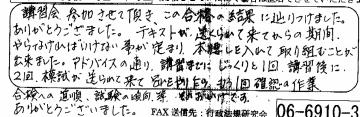 講習会 参加させて頂き、この合格の結果に辿りつけました。
ありがとうございました。テキストが送られて来てからの期間、
やらなければいけない事が定まり、本腰を入れて取り組むことが
出来ました。アドバイスの通り、講習までにじっくりと1回、講習後に
2回、模試が送られて来て もう1回確認の作業
合格への道順、試験の傾向、等 おかげです。
ありがとうございました。
FAX送信先:行政結規研究会 06-6910-3